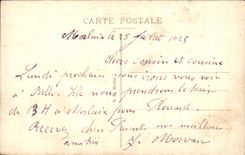 CARTE POSTALE
Morlaix le 25 Juillet 1925
Chers cousin et cousine
Lundi prochain nous irons vous voir
à Belle Ile nous prendrons le train
de 13 H à Morlaix pour
Recevez chers Parents nos meilleures
amitiés J. Morvan